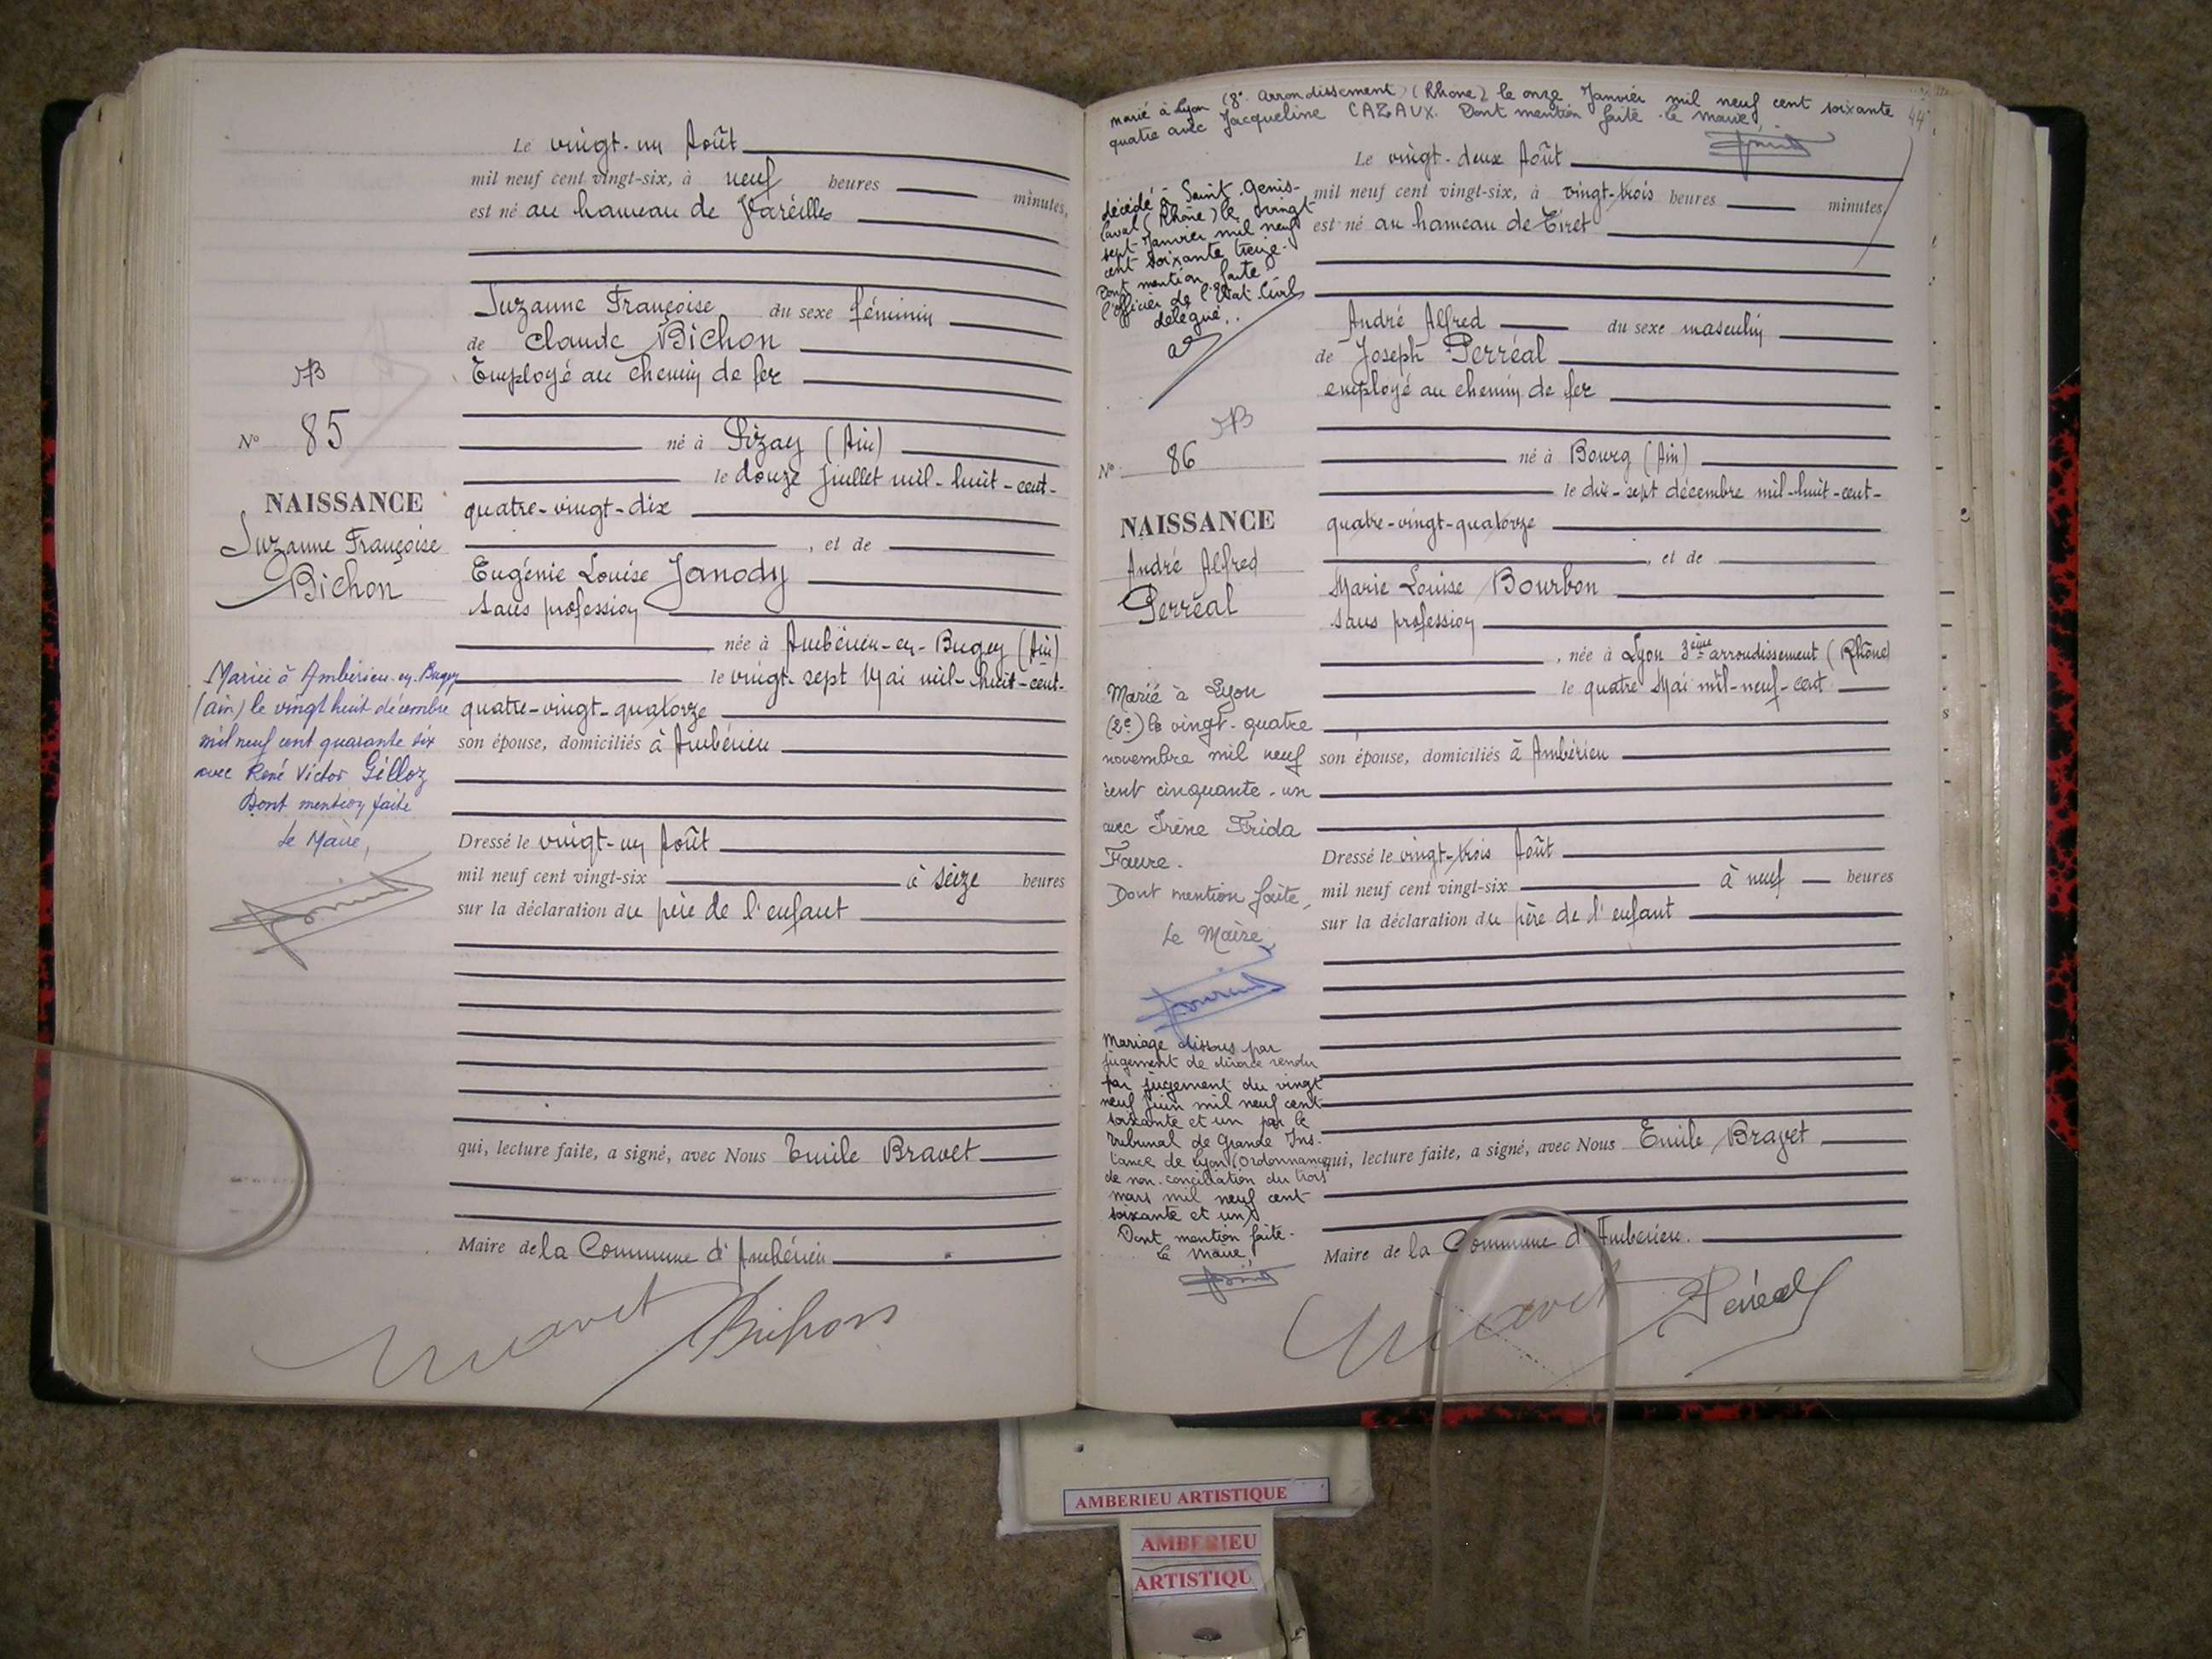 Le vingt-un Août
mil neuf cent vingt-six, à neuf heures minutes,
est né au hameau de Vareilles
Suzanne Françoise du sexe féminin
de Claude Bichon
Employé au chemin de fer
né à Pizay (Ain)
le douze Juillet mil-huit-cent-
quatre-vingt-dix
, et de
Eugénie Louise Janody
sans profession
née à Ambérieu-en-Bugey (Ain)
le vingt-sept Mai mil-huit-cent-
quatre-vingt-quatorze
son épouse, domiciliés à Ambérieu
Dressé le vingt-un Août
mil neuf cent vingt-six à seize heures
sur la déclaration du père de l'enfant
qui, lecture faite, a signé, avec Nous Emile Bravet
Maire de la Commune d'Ambérieu
Bravet Bichon
N° 85
NAISSANCE
Suzanne Françoise
Bichon
Mariée à Ambérieu-en-Bugey
(Ain) le vingt huit décembre
mil neuf cent quarante six
avec René Victor Gilloz
Dont mention faite
Le Maire,
marié à Lyon (8e Arrondissement) (Rhône) le onze Janvier mil neuf cent soixante
quatre avec Jacqueline CAZAUX. Dont mention faite. le maire
44
Le vingt-deux Août
mil neuf cent vingt-six, à vingt-trois heures minutes,
est né au hameau de Tiret
André Alfred du sexe masculin
de Joseph Perréal
employé au chemin de fer
né à Bourg (Ain)
le dix-sept décembre mil-huit-cent-
quatre-vingt-quatorze
, et de
Marie Louise Bourbon
sans profession
, née à Lyon 3ème arrondissement (Rhône)
le quatre Mai mil-neuf-cent
son épouse, domiciliés à Ambérieu
Dressé le vingt-trois Août
mil neuf cent vingt-six à neuf heures
sur la déclaration du père de l'enfant
qui, lecture faite, a signé, avec Nous Emile Bravet
Maire de la Commune d'Ambérieu.
Bravet Perréal
décédé à Saint-Genis-
Laval (Rhône) le vingt
sept Janvier mil neuf
cent soixante treize.
Dont mention faite
l'officier de l'Etat-Civil
délégué.
N° 86
NAISSANCE
André Alfred
Perréal
Marié à Lyon
(2e) le vingt-quatre
novembre mil neuf
cent cinquante-un
avec Irène Frida
Faure.
Dont mention faite,
Le Maire
Mariage dissous par
jugement de divorce rendu
par jugement du vingt
neuf Juin mil neuf cent
soixante et un par le
Tribunal de Grande Ins-
tance de Lyon (ordonnance
de non-conciliation du trois
mars mil neuf cent
soixante et un)
Dont mention faite.
Le Maire
AMBERIEU ARTISTIQUE
AMBERIEU
ARTISTIQU